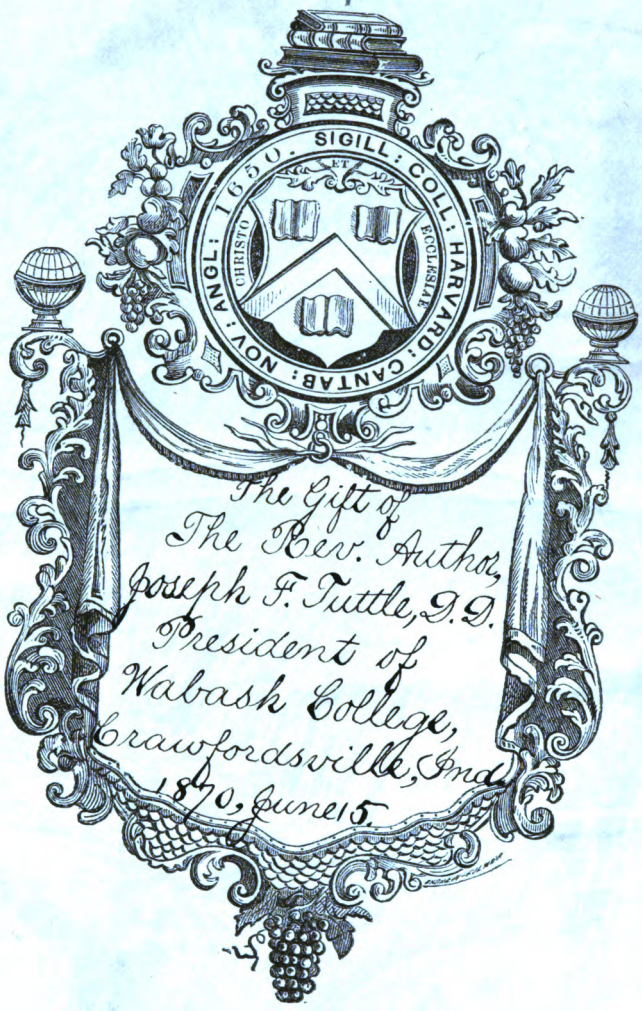 SIGILL: COLL: HARVARD: CANTAB: NOV: ANGL: 1650.
CHRISTO ET ECCLESIAE
The Gift of
The Rev. Author,
Joseph F. Tuttle, D.D.
President of
Wabash College,
Crawfordsville, Ind.
1870, June 15.